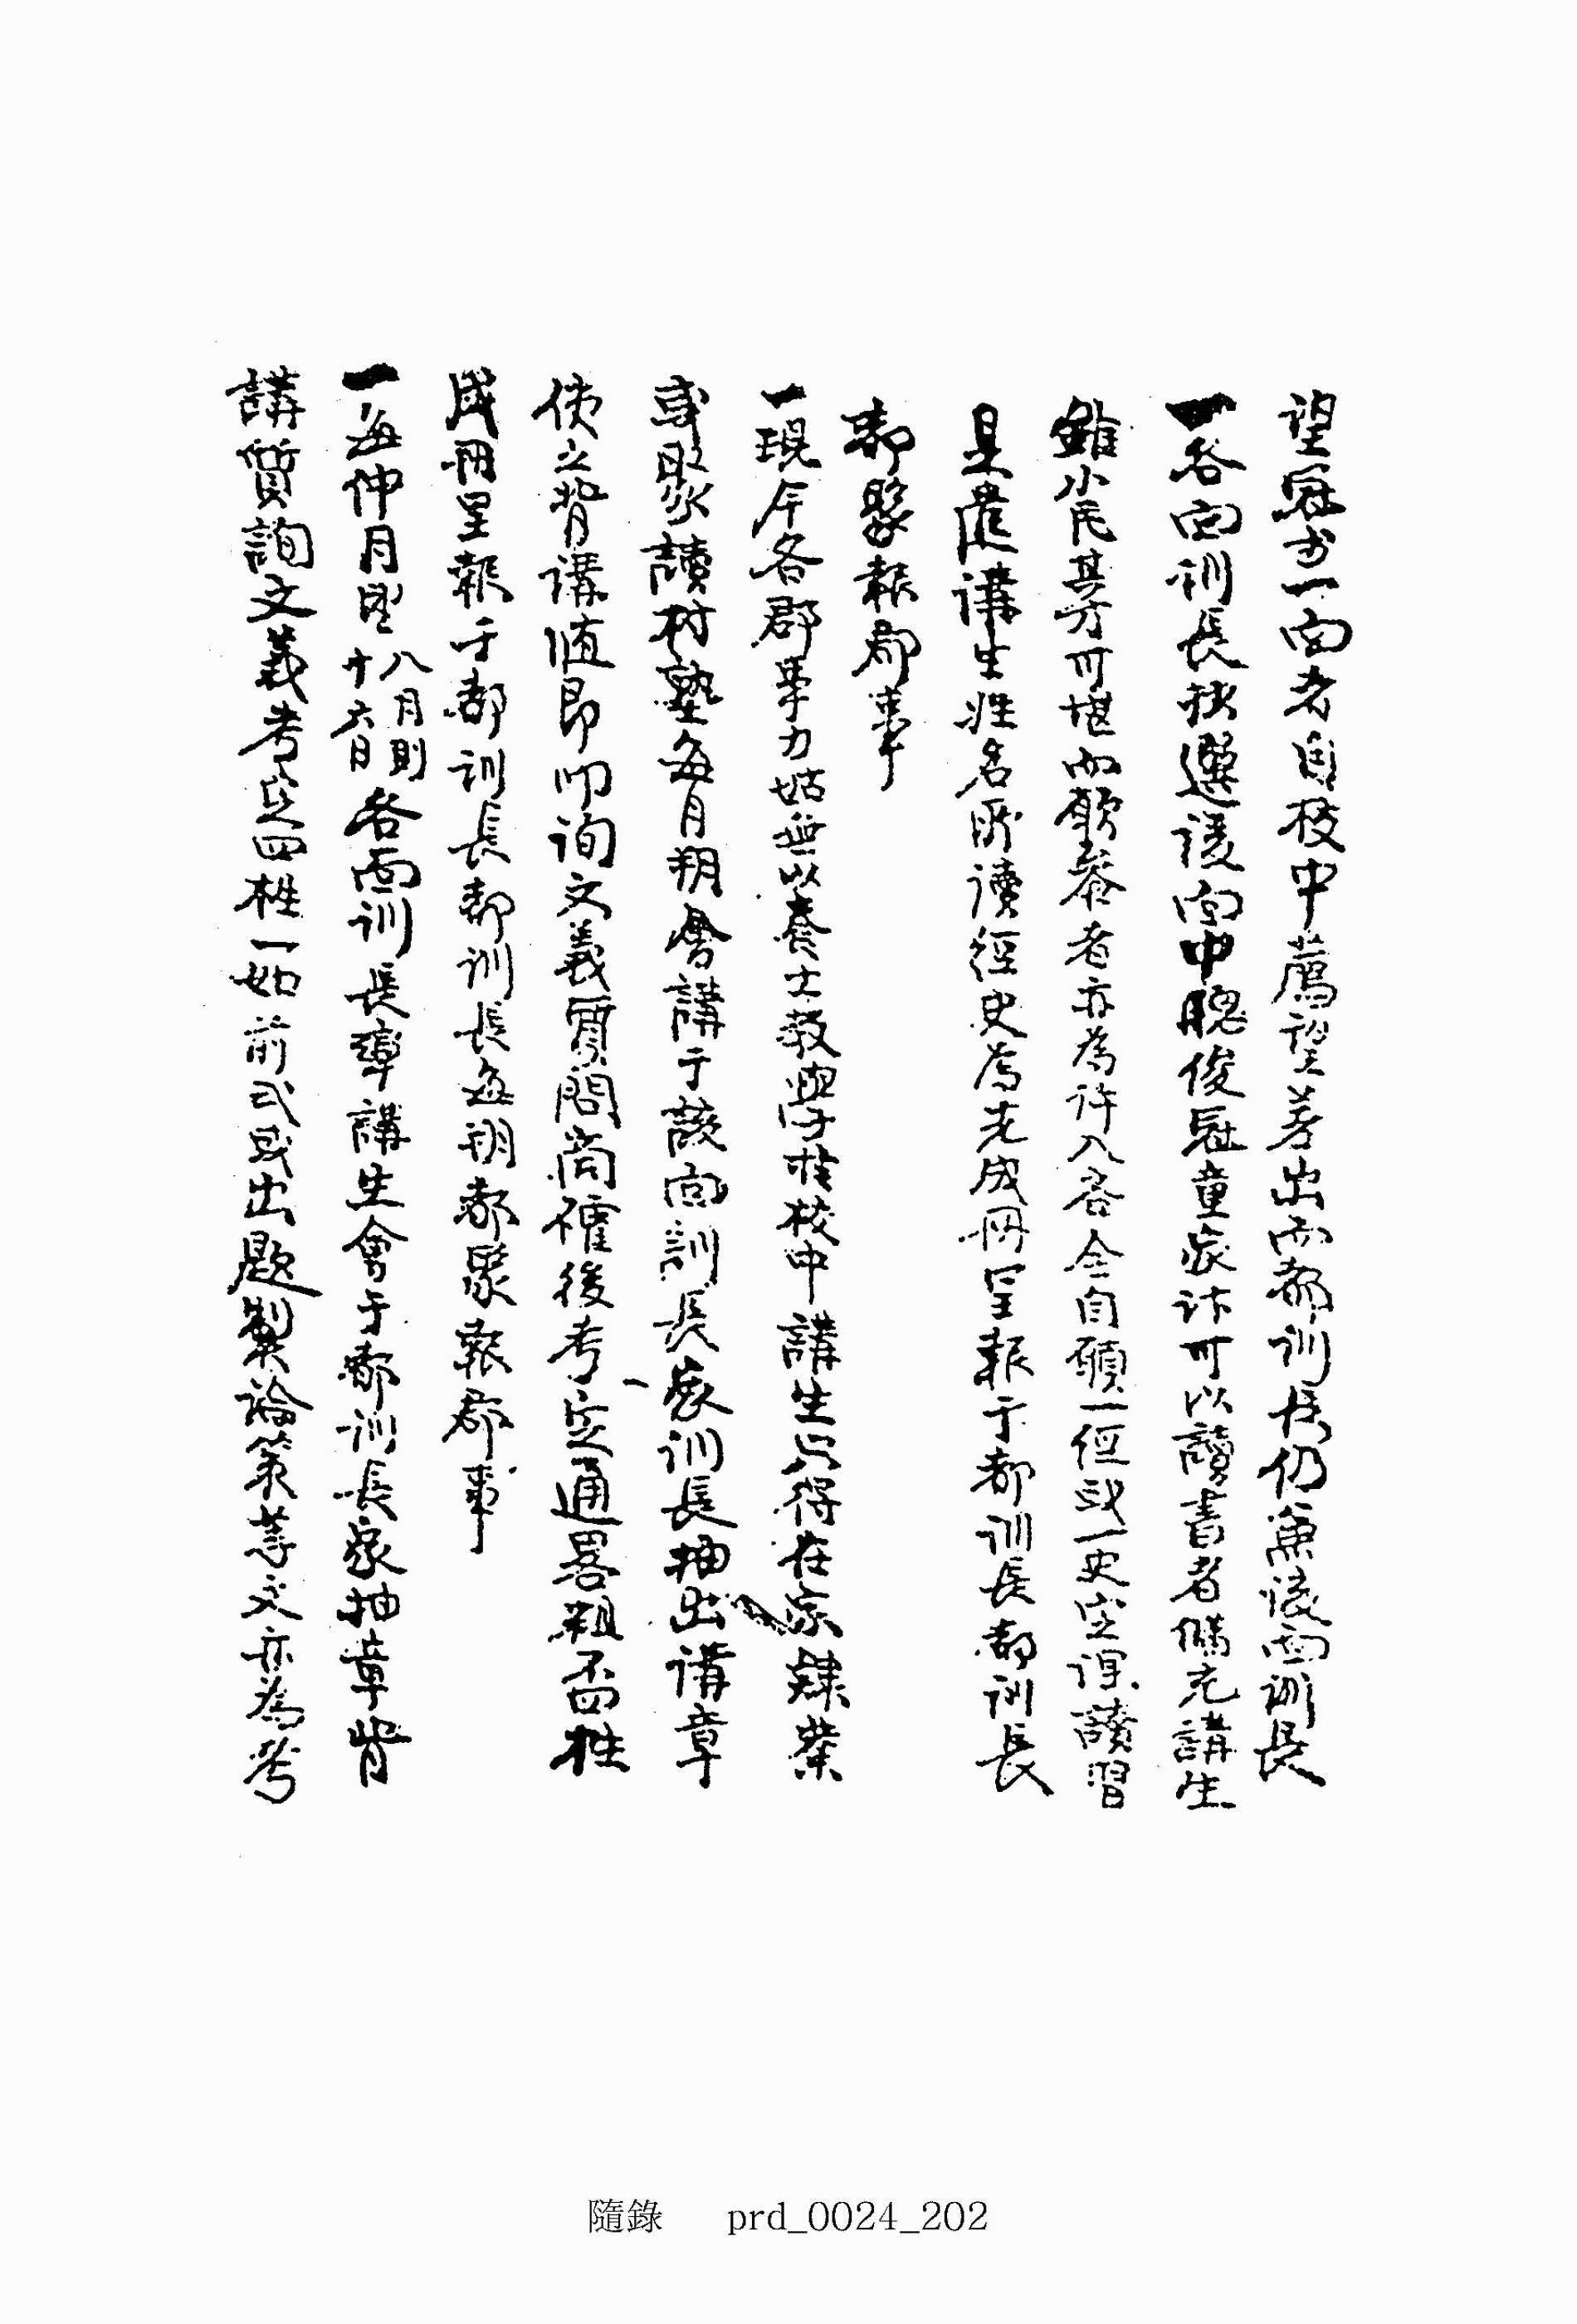 望冠於一面者自校中薦望差出而都訓長仍兼該面訓長
一各面訓長抄選該面中聰俊冠童家計可以讀書者備充講生
雖小民其才可堪而願參者亦為許入各令自願一經或一史定課讀習
是遣講生姓名所讀經史為先成冊呈報于都訓長都訓長
都聚報郡事
一現今各郡事力姑無以養士教學於校中講生只得在家肄業
或聚讀村塾每月朔會講于該面訓長家訓長抽出講章
使之背講隨即叩詢文義質問商確後考定通畧粗否四柱
成冊呈報于都訓長都訓長每朔都聚報郡事
一每仲月望八月則十六日各面訓長率講生會于都訓長家抽章背
講質詢文義考定四柱一如前式或出題製論策等文亦為考
隨錄 prd_0024_202